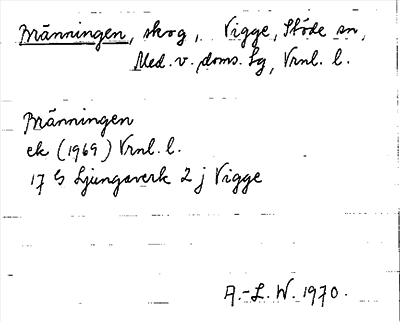 Bränningen, skog, Vigge, Stöde sn,
Med. v. doms. lg, Vrnl. l.
Bränningen
ek (1969) Vrnl. l.
17 G Ljungaverk 2 j Vigge
A.-L. W. 1970.